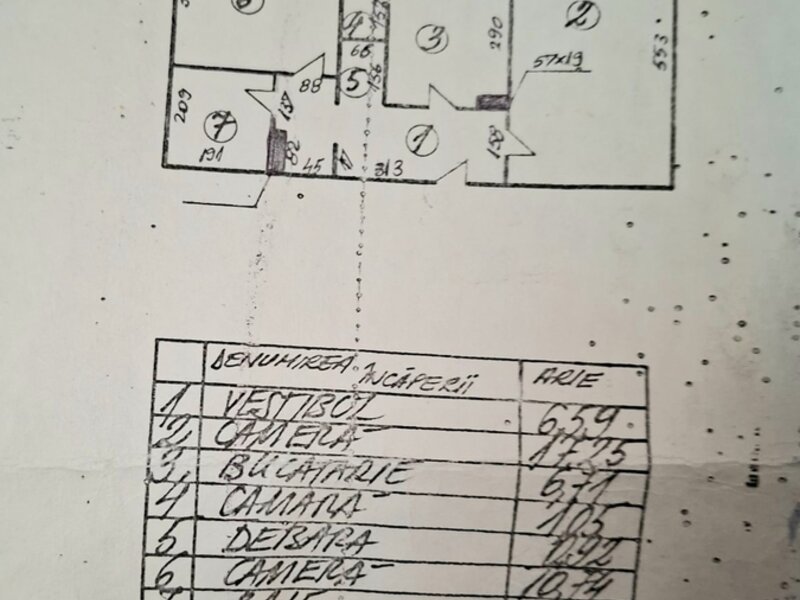 6
4
152
3
290
2
553
66
5
156
57x19
88
137
209
7
191
82
45
1
313
158
DENUMIREA ÎNCĂPERII ARIE
1 VESTIBOL 6,59
2 CAMERĂ 17,25
3. BUCĂTĂRIE 6,71
4 CĂMARĂ 1,05
5 DEBARA
6 CAMERĂ 10,74